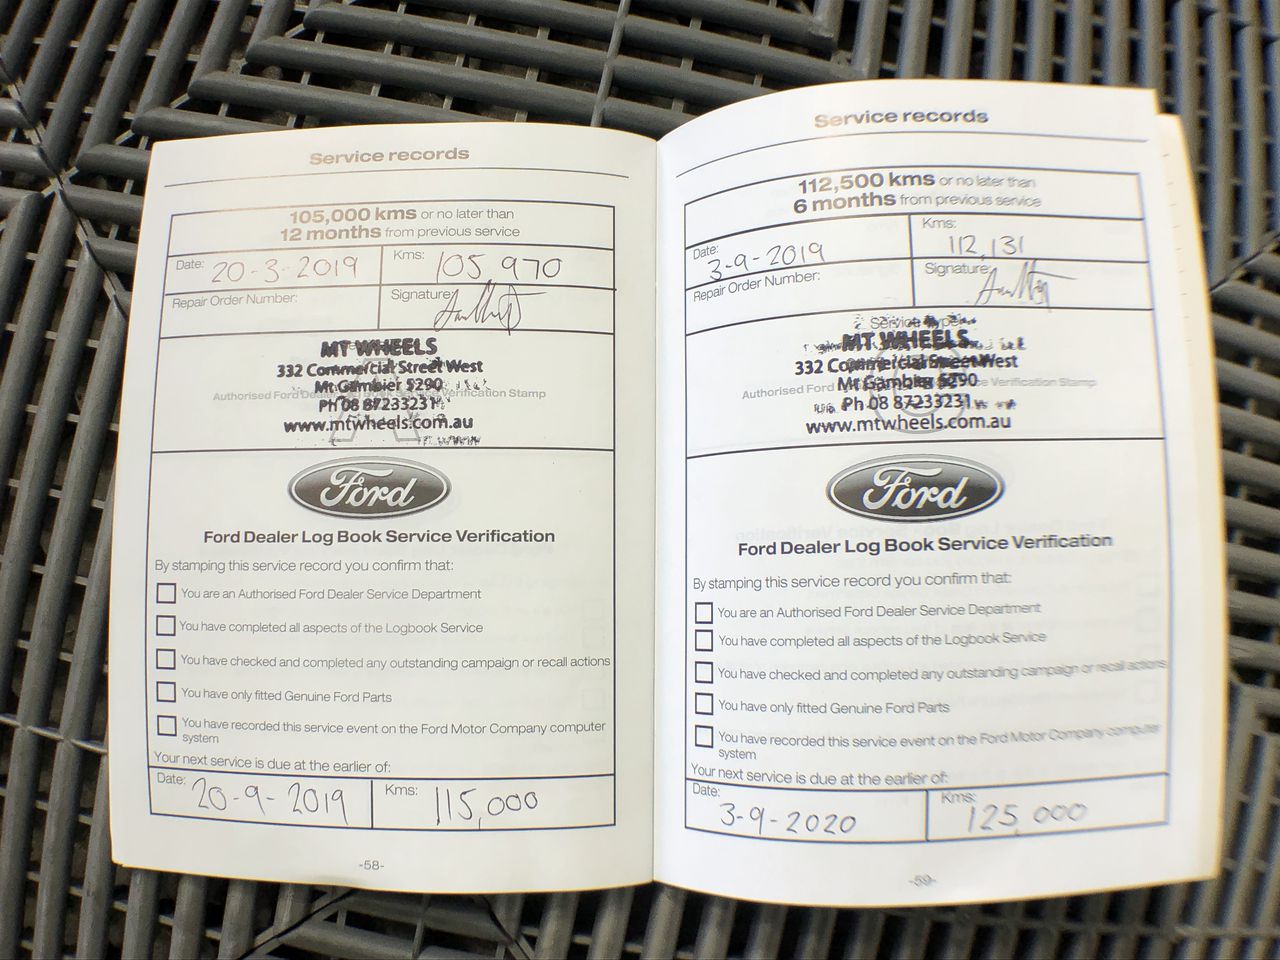 Service records
105,000 kms or no later than
12 months from previous service
Date: 20-3-2019 Kms: 105,970
Repair Order Number: Signature:
MT WHEELS
332 Commercial Street West
Mt Gambier 5290
Authorised Ford Dealer Log Book Service Verification Stamp
Ph 08 87233231
www.mtwheels.com.au
Ford
Ford Dealer Log Book Service Verification
By stamping this service record you confirm that:
You are an Authorised Ford Dealer Service Department
You have completed all aspects of the Logbook Service
You have checked and completed any outstanding campaign or recall actions
You have only fitted Genuine Ford Parts
You have recorded this service event on the Ford Motor Company computer
system
Your next service is due at the earlier of:
Date: 20-9-2019 Kms: 115,000
-58-
Service records
112,500 kms or no later than
6 months from previous service
Date: 3-9-2019 Kms: 112,131
Repair Order Number: Signature:
Service Type
MT WHEELS
332 Commercial Street West
Mt Gambier 5290
Authorised Ford Service Verification Stamp
Ph 08 87233231
www.mtwheels.com.au
Ford
Ford Dealer Log Book Service Verification
By stamping this service record you confirm that:
You are an Authorised Ford Dealer Service Department
You have completed all aspects of the Logbook Service
You have checked and completed any outstanding campaign or recall actions
You have only fitted Genuine Ford Parts
You have recorded this service event on the Ford Motor Company computer
system
Your next service is due at the earlier of:
Date: 3-9-2020 Kms: 125,000
-59-